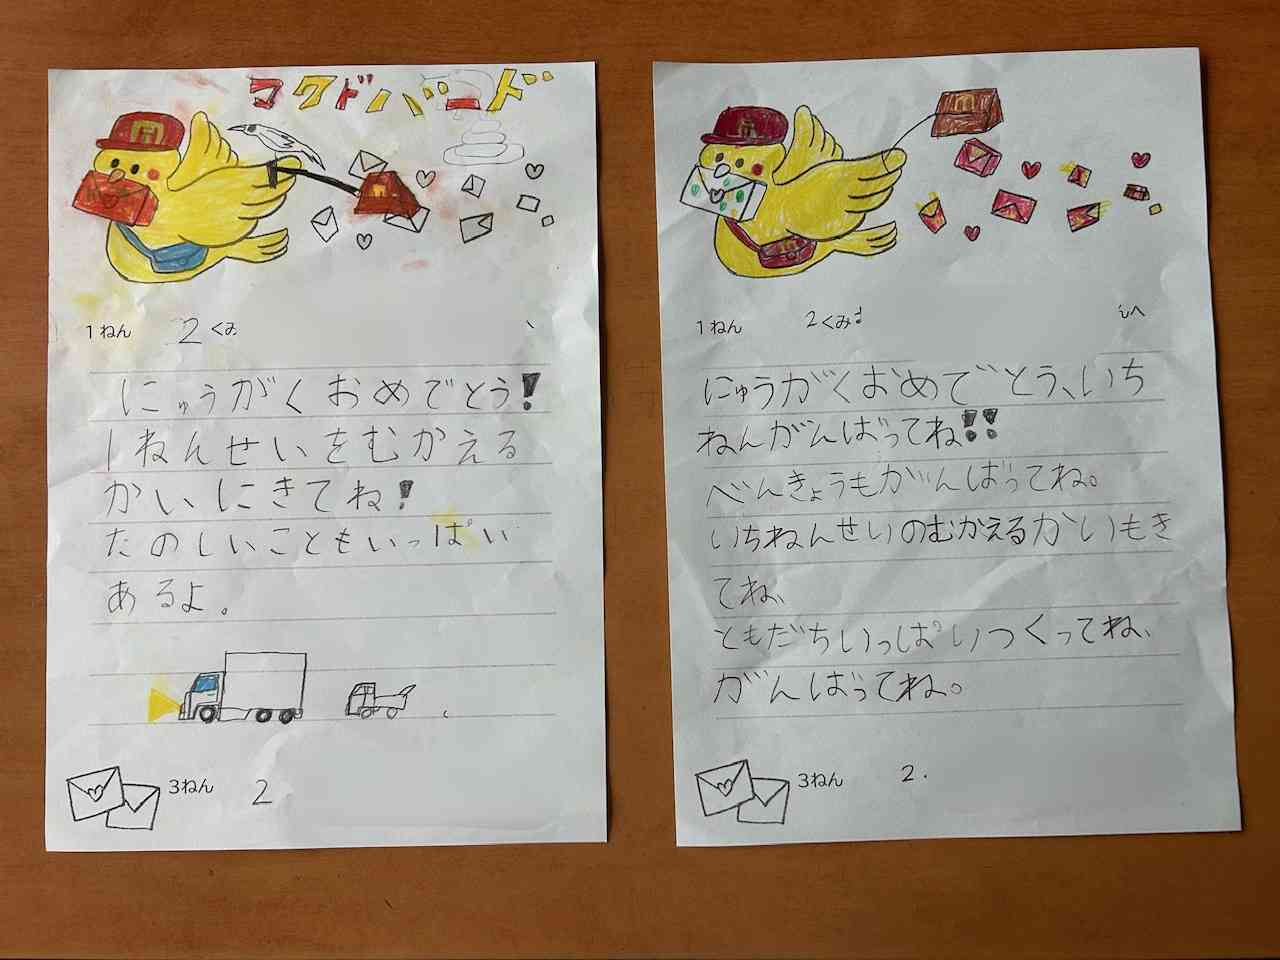 マクドバード
1ねん 2くみ
にゅうがくおめでとう!
1ねんせいをむかえる
かいにきてね!
たのしいこともいっぱい
あるよ。
3ねん 2
1ねん 2くみ
へ
にゅうがくおめでとう、いち
ねんがんばってね!!
べんきょうもがんばってね。
いちねんせいのむかえるかいもき
てね、
ともだちいっぱいつくってね、
がんばってね。
3ねん 2.